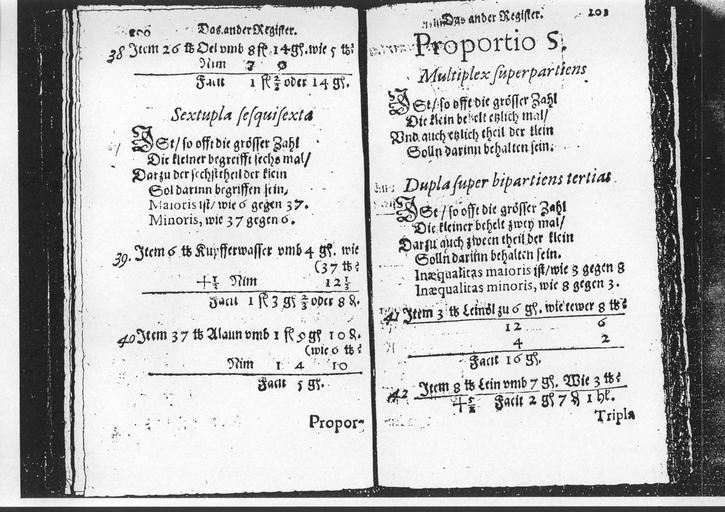 200 Das ander Register.
38 Item 26 ℔ Oel vmb 8 fl 14 gl. wie 5 ℔?
Nim 7 0
Facit 1 fl 2/3 oder 14 gl.
Sextupla sesquisexta
ISt / so offt die grösser Zahl
Die kleiner begreifft sechs mal /
Darzu der sechstetheil der klein
Sol darinn begriffen sein,
Maioris ist / wie 6 gegen 37.
Minoris, wie 37 gegen 6.
39. Item 6 ℔ Kupfferwasser vmb 4 gl. wie
(37 ℔?
+ 1/2 Nim 12 1/2
Facit 1 fl 3 gl 2/3 oder 8 ₰.
40 Item 37 ℔ Alaun vmb 1 fl 9 gl 10 ₰.
(wie 6 ℔?
Nim 1 4 10
Facit 5 gl.
Propor-
Das ander Register. 201
Proportio 5.
Multiplex superpartiens
ISt / so offt die grösser Zahl
Die klein behelt etlich mal /
Vnd auch etlich theil der klein
Solln darinn behalten sein.
Dupla super bipartiens tertias
ISt / so offt die grösser Zahl
Die kleiner behelt zwey mal /
Darzu auch zween theil der klein
Solln darinn behalten sein.
Inæqualitas maioris ist / wie 3 gegen 8
Inæqualitas minoris, wie 8 gegen 3.
41 Item 3 ℔ Leinöl zu 6 gl. wie tewer 8 ℔?
12 6
4 2
Facit 16 gl.
42 Item 8 ℔ Lein vmb 7 gl. Wie 3 ℔?
Facit 2 gl 7 ₰ 1 hl.
Tripla